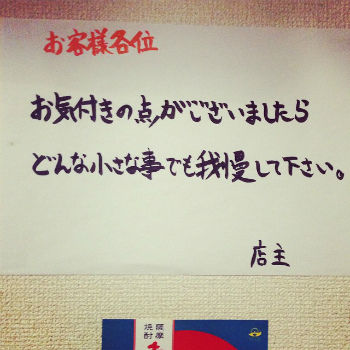 お客様各位
お気付きの点がございましたら
どんな小さな事でも我慢して下さい。
店主
薩摩
焼酎